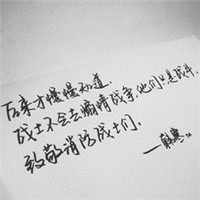 后来才慢慢知道,
战士不会去煽情战争,他们只是战斗.
致敬消防战士们.
—韩寒